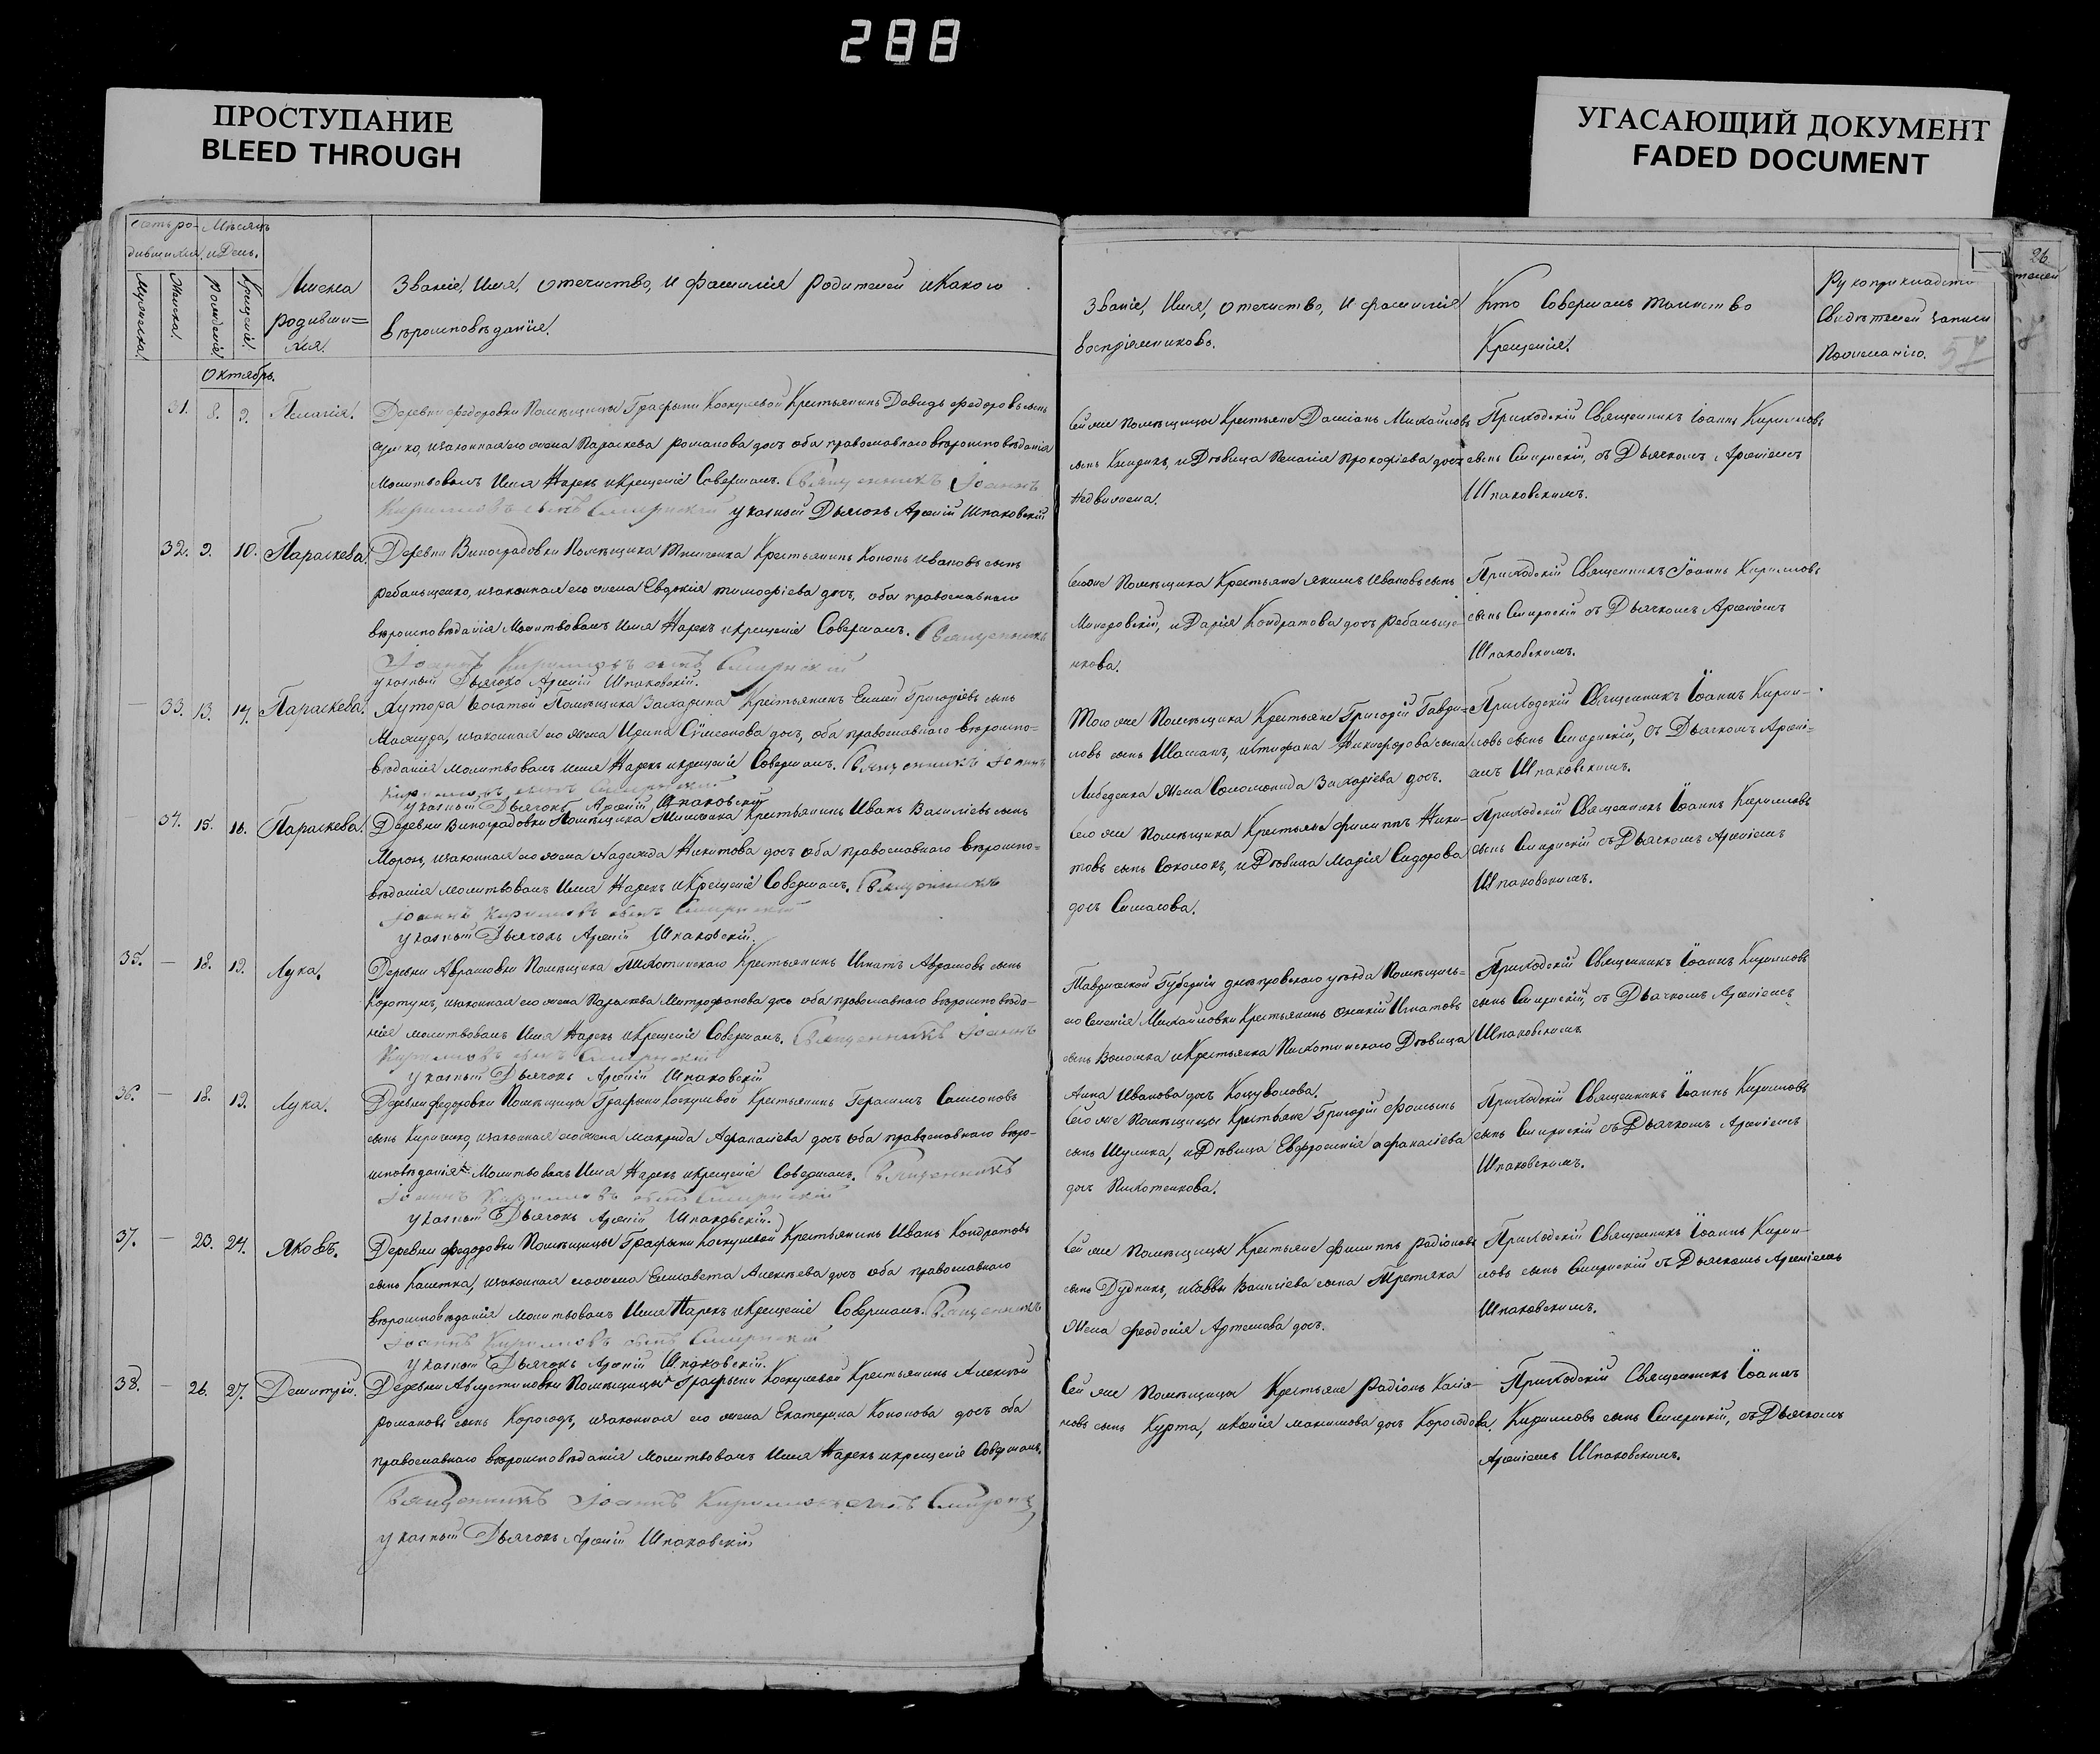 288
ПРОСТУПАНИЕ
BLEED THROUGH
УГАСАЮЩИЙ ДОКУМЕНТ
FADED DOCUMENT
26
57
Мѣсяцъ
дившихся. и День.
Мужеска.
Женска.
Рожденія.
Крещенія.
Имена
родивши=
хся.
Званіе, Имя, отечество, и фамилія родителей и Какого
вѣроисповѣданія.
Званіе, Имя, отечество, и фамилія
воспріемниковъ.
Кто Совершалъ таинство
Крещенія.
Рукоприкладство
Свидѣтелей записи
По желанію.
Октябрь.
31. 8. 9. Пелагія.
Деревни Федоровки Помѣщицы Графыни Коскулевой Крестьянинъ Давидъ Федоровъ сынъ
изаконная его жена Параскева Романова дочь оба православнаго вѣроисповѣданія
Молитвовалъ Имя Нарекъ и Крещеніе Совершалъ. Священникъ Іоаннъ
Кирилловъ сынъ Смирнскій указный Дьячокъ Арсеній Шпаковскій
Сей же Помѣщицы Крестьяне Даміанъ Михайловъ
сынъ и Дѣвица Пелагія Прокофіева дочь
Приходскій Священникъ Іоаннъ Кирилловъ
сынъ Смирнскій, съ Дьячкомъ Арсеніемъ
Шпаковскимъ.
32. 9. 10. Параскева.
Деревни Виноградовки Помѣщика Крестьянинъ Кононъ Ивановъ сынъ
изаконная его жена Евдокія Тимофіева дочь, оба православнаго
вѣроисповѣданія Молитвовалъ Имя Нарекъ и Крещеніе Совершалъ. Священникъ
Іоаннъ Кирилловъ сынъ Смирнскій
указный Дьячокъ Арсеній Шпаковскій.
Сего же Помѣщика Крестьяне Якимъ Ивановъ сынъ
и Дарія Кондратова дочь
нкова.
Приходскій Священникъ Іоаннъ Кирилловъ
сынъ Смирнскій съ Дьячкомъ Арсеніемъ
Шпаковскимъ.
33. 13. 14. Параскева.
Хутора Богатой Помѣщика Захарина Крестьянинъ Григоріевъ сынъ
изаконная его жена Ирина Симонова дочь, оба православнаго вѣроиспо=
вѣданія молитвовалъ имя Нарекъ и крещеніе Совершалъ. Священникъ Іоаннъ
Кирилловъ сынъ Смирнскій
указный Дьячокъ Арсеній Шпаковскій
Того же Помѣщика Крестьяне Григорій Гаври=
ловъ сынъ Шаманъ, Никифорова сына
Лебеденка Жена Соломонида Захаріева дочь.
Приходскій Священникъ Іоаннъ Кирил-
ловъ сынъ Смирнскій, съ Дьячкомъ Арсені-
емъ Шпаковскимъ.
34. 15. 16. Параскева.
Деревни Виноградовки Помѣщика Крестьянинъ Иванъ Василіевъ сынъ
Морозъ, изаконная его жена Надежда Никитова дочь оба православнаго вѣроиспо=
вѣданія молитвовалъ Имя Нарекъ и Крещеніе Совершалъ. Священникъ
Іоаннъ Кирилловъ сынъ Смирнскій
указный Дьячокъ Арсеній Шпаковскій.
Сего же Помѣщика Крестьяне Филиппъ Ники-
товъ сынъ Соколокъ, и Дѣвица Марія Сидорова
дочь
Приходскій Священникъ Іоаннъ Кирилловъ
сынъ Смирнскій съ Дьячкомъ Арсеніемъ
Шпаковскимъ.
35. — 18. 19. Лука.
Деревни Аврамовки Помѣщика Крестьянинъ Игнатъ Аврамовъ сынъ
Коротунъ, изаконная его жена Параскева Митрофанова дочь оба православнаго вѣроисповѣда-
нія молитвовалъ Имя Нарекъ и Крещеніе Совершалъ. Священникъ Іоаннъ
Кирилловъ сынъ Смирнскій
указный Дьячокъ Арсеній Шпаковскій
Таврической Губерніи Днѣпровского уѣзда Помѣщичь=
его Имѣнія Михайловки Крестьянинъ Игнатовъ
сынъ Волошка и Крестьянка Дѣвица
Анна Иванова дочь
Приходскій Священникъ Іоаннъ Кирилловъ
сынъ Смирнскій, съ Дьячкомъ Арсеніемъ
Шпаковскимъ
36. — 18. 19. Лука.
Деревни Федоровки Помѣщицы Графыни Коскулевой Крестьянинъ Герасимъ Самсоновъ
сынъ Кириченко, изаконная его жена Макрида Афанасіева дочь оба православнаго вѣро-
исповѣданія Молитвовалъ Имя Нарекъ и крещеніе Совершалъ. Священникъ
Іоаннъ Кирилловъ сынъ Смирнскій
указный Дьячокъ Арсеній Шпаковскій.
Сего же Помѣщицы Крестьяне Григорій Фоминъ
сынъ Шулика, и Дѣвица Евфросинія Афанасіева
дочь
Приходскій Священникъ Іоаннъ Кирилловъ
сынъ Смирнскій съ Дьячкомъ Арсеніемъ
Шпаковскимъ.
37. — 23. 24. Яковъ.
Деревни Федоровки Помѣщицы Графыни Коскулевой Крестьянинъ Иванъ Кондратовъ
сынъ изаконная его жена Елисавета Алексѣева дочь оба православнаго
вѣроисповѣданія молитвовалъ Имя Нарекъ и Крещеніе Совершалъ. Священникъ
Іоаннъ Кирилловъ сынъ Смирнскій
указный Дьячокъ Арсеній Шпаковскій.
Сей же Помѣщицы Крестьяне Филиппъ Радіоновъ
сынъ Дудникъ, и Саввы Василіева сына Третяка
Жена Феодосія Артемова дочь.
Приходскій Священникъ Іоаннъ Кирил-
ловъ сынъ Смирнскій съ Дьячкомъ Арсеніемъ
Шпаковскимъ.
38. — 26. 27. Демитрій.
Деревни Августиновки Помѣщицы Графыни Коскулевой Крестьянинъ Алексѣй
Романовъ сынъ Корогодъ, изаконная его жена Екатерина Кононова дочь оба
православнаго вѣроисповѣданія Молитвовалъ Имя Нарекъ и крещеніе Совершалъ.
Священникъ Іоаннъ Кирилловъ сынъ
указный Дьячокъ Арсеній Шпаковскій
Сей же Помѣщицы Крестьяне Радіонъ
новъ сынъ Курта, и Ксенія Максимова дочь Корогодова.
Приходскій Священникъ Іоаннъ
Кирилловъ сынъ Смирнскій, съ Дьячкомъ
Арсеніемъ Шпаковскимъ.